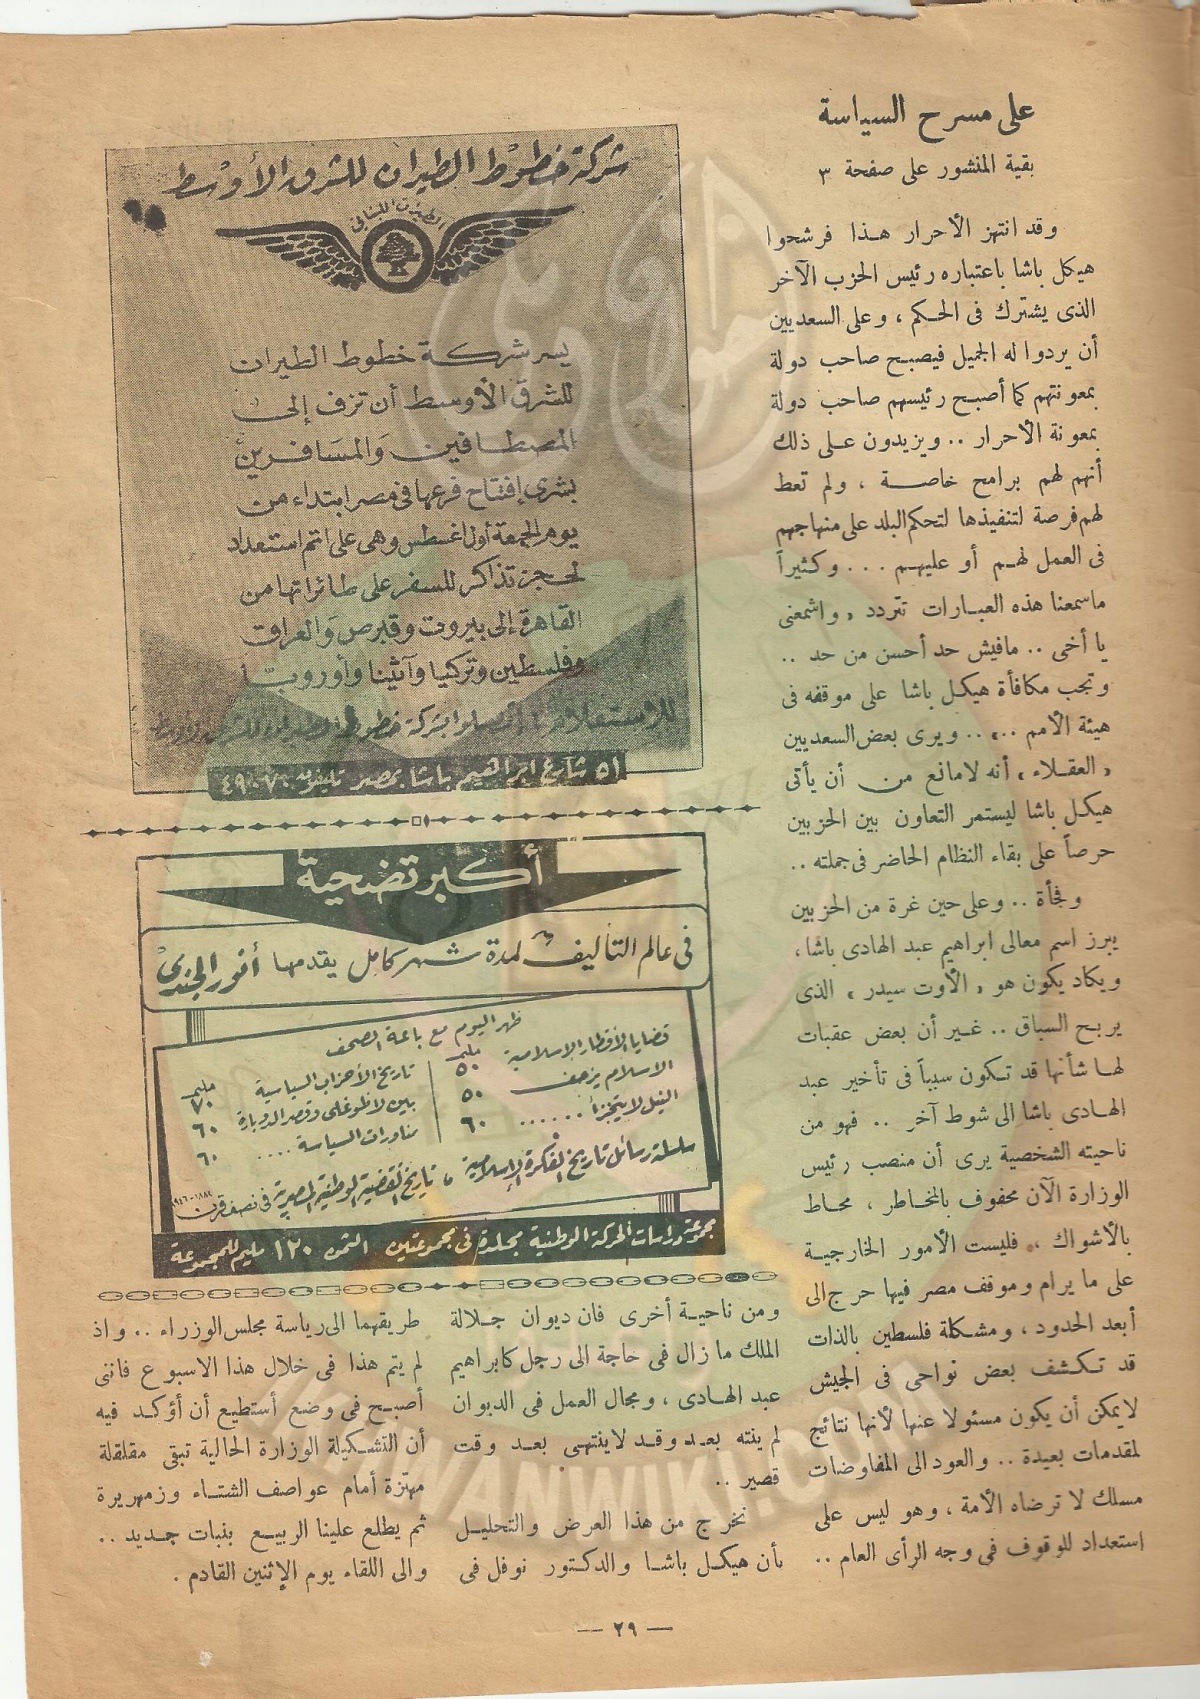 على مسرح السياسة
بقية المنشور على صفحة ٣
وقد انتهز الأحرار هذا فرشحوا
هيكل باشا باعتباره رئيس الحزب الآخر
الذى يشترك فى الحكم ، وعلى السعديين
أن يردوا له الجميل فيصبح صاحب دولة
بمعونتهم كما أصبح رئيسهم صاحب دولة
بمعونة الأحرار .. ويزيدون على ذلك
أنهم لهم برامج خاصة ، ولم تعط
لهم فرصة لتنفيذها لتحكم البلد على منهاجهم
فى العمل لهم أو عليهم ... وكثيراً
ماسمعنا هذه العبارات تتردد « واشمعنى
يا أخى .. مافيش حد أحسن من حد ..
وتجب مكافأة هيكل باشا على موقفه فى
هيئة الأمم ..» .. ويرى بعض السعديين
« العقلاء » أنه لامانع من أن يأتى
هيكل باشا ليستمر التعاون بين الحزبين
حرصاً على بقاء النظام الحاضر فى جملته ..
وفجأة .. وعلى حين غرة من الحزبين
يبرز اسم معالى ابراهيم عبد الهادى باشا ،
ويكاد يكون هو « الأوت سيدر » الذى
يربح السباق .. غير أن بعض عقبات
لها شأنها قد تكون سبباً فى تأخير عبد
الهادى باشا الى شوط آخر .. فهو من
ناحيته الشخصية يرى أن منصب رئيس
الوزارة الآن محفوف بالمخاطر ، محاط
بالأشواك ، فليست الأمور الخارجية
على ما يرام وموقف مصر فيها حرج الى
أبعد الحدود ، ومشكلة فلسطين بالذات
قد تكشف بعض نواحى فى الجيش
لايمكن أن يكون مسئولا عنها لأنها نتائج
لمقدمات بعيدة .. والعود الى المفاوضات
مسلك لا ترضاه الأمة ، وهو ليس على
استعداد للوقوف فى وجه الرأى العام ..
شركة خطوط الطيران للشرق الأوسط
الطيران اللبنانى
يسر شركة خطوط الطيران
للشرق الأوسط أن تزف إلى
المصطافين والمسافرين
بشرى إفتتاح فرعها فى مصر ابتداء من
يوم الجمعة أول اغسطس وهى على اتم استعداد
لحجز تذاكر للسفر على طائراتها من
القاهرة إلى بيروت وقبرص والعراق
وفلسطين وتركيا وآثينا وأوروبا
للاستعلامات اتصلوا بشركة خطوط الطيران للشرق الأوسط
٥١ شارع ابراهيم باشا بمصر تليفون ٤٩٠٧٠
أكبر تضحية
فى عالم التأليف لمدة شهر كامل يقدمها أنور الجندى
ظهر اليوم مع باعة الصحف
قضايا الأقطار الإسلامية مليم ٥٠
الاسلام يزحف ٥٠
النيل لا يتجزأ ...... ٦٠
تاريخ الأحزاب السياسية مليم ٧٠
بين لاظوغلى وقصر الدوبارة ٦٠
مناورات السياسة .... ٦٠
سلسلة رسائل تاريخ الفكرة الإسلامية ، تاريخ القضية الوطنية المصرية فى نصف قرن ١٨٨٢-١٩٤٦
مجموعة دراسات الحركة الوطنية مجلدة فى مجموعتين الثمن ١٢٠ مليم للمجموعة
ومن ناحية أخرى فان ديوان جلالة
الملك ما زال فى حاجة الى رجل كابراهيم
عبد الهادى ، ومجال العمل فى الديوان
لم ينته بعد وقد لاينتهى بعد وقت
قصير ..
نخرج من هذا العرض والتحليل
بأن هيكل باشا والدكتور نوفل فى
طريقهما الى رياسة مجلس الوزراء .. واذ
لم يتم هذا فى خلال هذا الاسبوع فاننى
أصبح فى وضع أستطيع أن أؤكد فيه
أن التشكيلة الوزارة الحالية تبقى مقلقلة
مهتزة أمام عواصف الشتاء وزمهريرة
ثم يطلع علينا الربيع بنبات جديد ..
والى اللقاء يوم الإثنين القادم .
— ٢٩ —